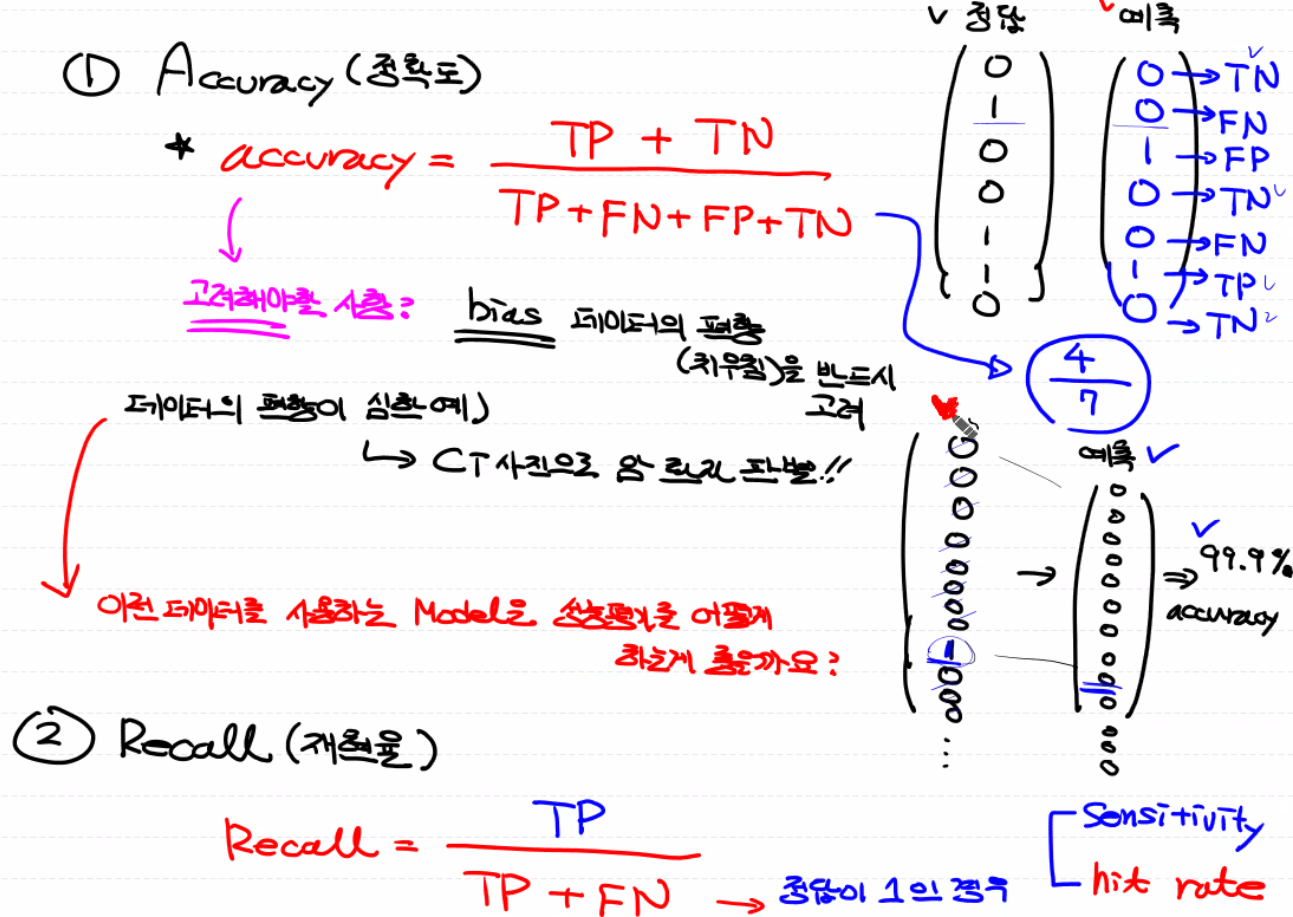 ✓ 정답 ✓ 예측
① Accuracy (정확도)
* accuracy = TP + TN / TP + FN + FP + TN
0 0 → TN ✓
1 0 → FN
0 1 → FP
0 0 → TN ✓
1 0 → FN
1 1 → TP ✓
0 0 → TN ✓
4/7
고려해야할 사항?
bias 데이터의 편향
(치우침)을 반드시
고려
데이터의 편향이 심한 예)
↳ CT사진으로 암 판별!!
예측 ✓
0
0
0
0
0
0
0
1
0
0
0
⋮
→
0
0
0
0
0
0
0
0
0
0
0
0
0
⇒ 99.9% ✓
accuracy
이런 데이터를 사용하는 Model은 성능평가를 어떻게
하는게 좋을까요?
② Recall (재현율)
Recall = TP / TP + FN → 정답이 1인 경우
Sensitivity
hit rate